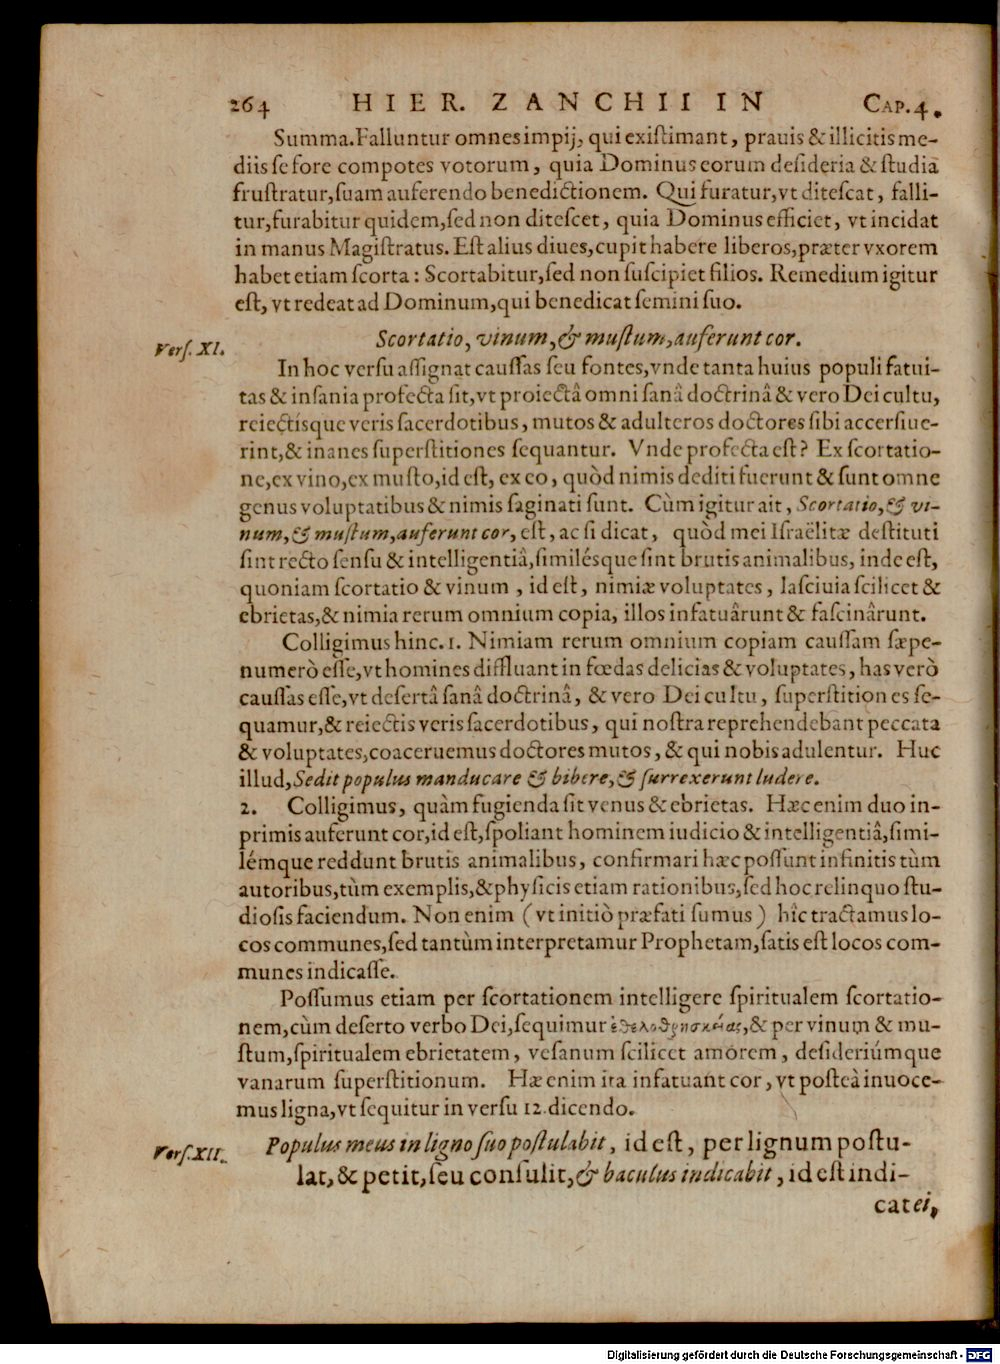 264 HIER. ZANCHII IN CAP. 4.
Summa. Falluntur omnes impij, qui existimant, prauis & illicitis me-
diis se fore compotes votorum, quia Dominus eorum desideria & studia
frustratur, suam auferendo benedictionem. Qui furatur, vt ditescat, falli-
tur, furabitur quidem, sed non ditescet, quia Dominus efficiet, vt incidat
in manus Magistratus. Est alius diues, cupit habere liberos, præter vxorem
habet etiam scorta: Scortabitur, sed non suscipiet filios. Remedium igitur
est, vt redeat ad Dominum, qui benedicat semini suo.
Vers. XI. Scortatio, vinum, & mustum, auferunt cor.
In hoc versu assignat caussas seu fontes, vnde tanta huius populi fatui-
tas & insania profecta sit, vt proiectâ omni sanâ doctrinâ & vero Dei cultu,
reiectísque veris sacerdotibus, mutos & adulteros doctores sibi accersiue-
rint, & inanes superstitiones sequantur. Vnde profecta est? Ex scortatio-
ne, ex vino, ex musto, id est, ex eo, quòd nimis dediti fuerunt & sunt omne
genus voluptatibus & nimis saginati sunt. Cùm igitur ait, Scortatio, & vi-
num, & mustum, auferunt cor, est, ac si dicat, quòd mei Israëlitæ destituti
sint recto sensu & intelligentiâ, similésque sint brutis animalibus, inde est,
quoniam scortatio & vinum, id est, nimiæ voluptates, lasciuia scilicet &
ebrietas, & nimia rerum omnium copia, illos infatuârunt & fascinârunt.
Colligimus hinc. 1. Nimiam rerum omnium copiam caussam sæpe-
numerò esse, vt homines diffluant in fœdas delicias & voluptates, has verò
caussas esse, vt desertâ sanâ doctrinâ, & vero Dei cultu, superstitiones se-
quamur, & reiectis veris sacerdotibus, qui nostra reprehendebant peccata
& voluptates, coaceruemus doctores mutos, & qui nobis adulentur. Huc
illud, Sedit populus manducare & bibere, & surrexerunt ludere.
2. Colligimus, quàm fugienda sit venus & ebrietas. Hæc enim duo in-
primis auferunt cor, id est, spoliant hominem iudicio & intelligentiâ, simi-
lémque reddunt brutis animalibus, confirmari hæc possunt infinitis tùm
autoribus, tùm exemplis, & physicis etiam rationibus, sed hoc relinquo stu-
diosis faciendum. Non enim (vt initiò præfati sumus) hîc tractamus lo-
cos communes, sed tantùm interpretamur Prophetam, satis est locos com-
munes indicasse.
Possumus etiam per scortationem intelligere spiritualem scortatio-
nem, cùm deserto verbo Dei, sequimur ἐθελοθρησκείας, & per vinum & mu-
stum, spiritualem ebrietatem, vesanum scilicet amorem, desideriúmque
vanarum superstitionum. Hæ enim ita infatuant cor, vt posteà inuoce-
mus ligna, vt sequitur in versu 12. dicendo.
Vers. XII. Populus meus in ligno suo postulabit, id est, per lignum postu-
lat, & petit, seu consulit, & baculus indicabit, id est indi-
cat ei,
Digitalisierung gefördert durch die Deutsche Forschungsgemeinschaft - DFG